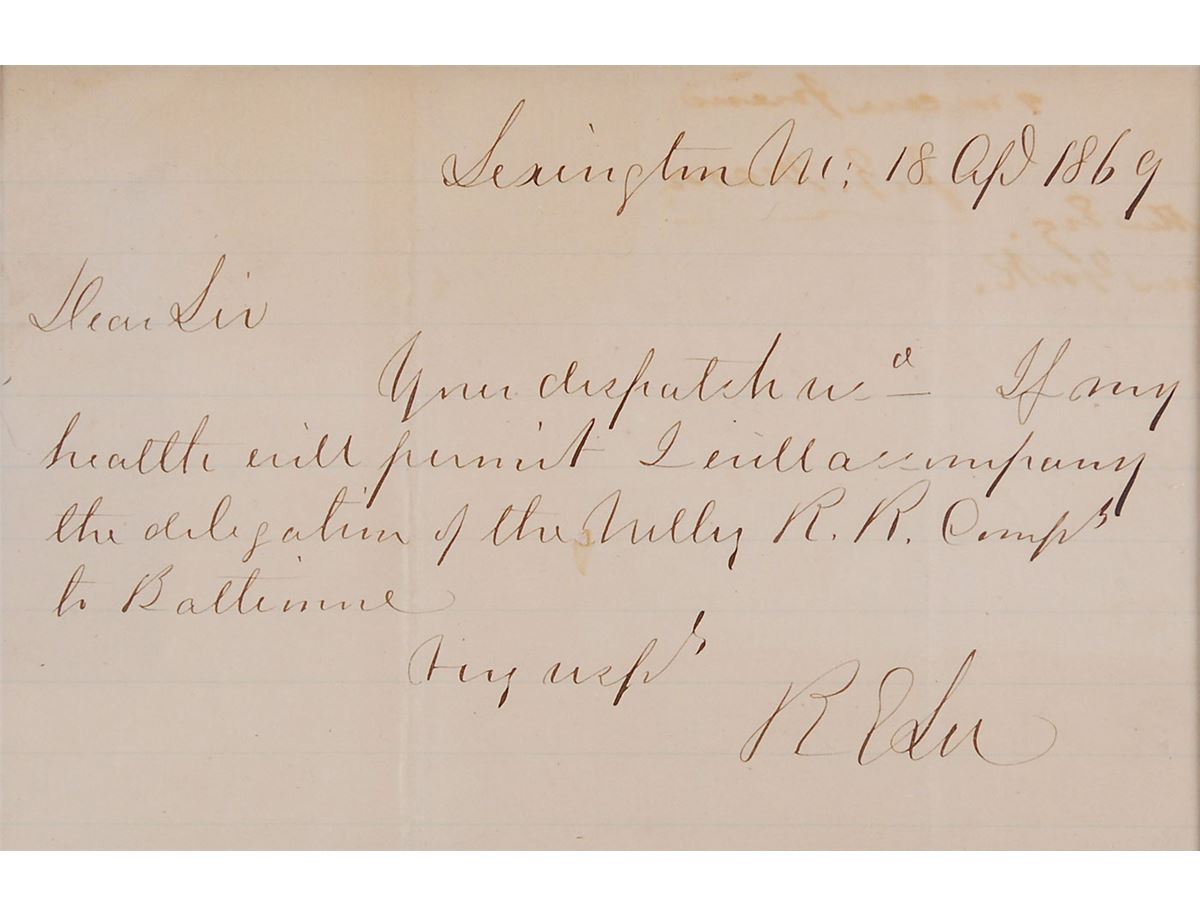 Lexington Va: 18 Apl 1869
Dear Sir
Your dispatch recd — If my
health will permit I will accompany
the delegation of the Valley R. R. Compy
to Baltimore
Very respy
R E Lee